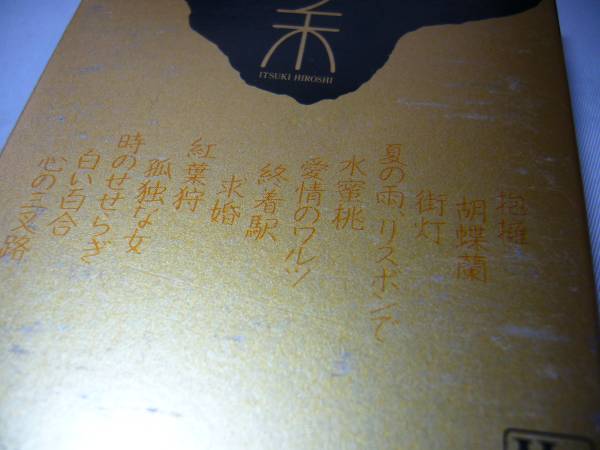 ITSUKI HIROSHI
抱擁
胡蝶蘭
街灯
夏の雨、リスボンで
水蜜桃
愛情のワルツ
終着駅
求婚
紅葉狩
孤独な女
時のせせらぎ
白い百合
心の三叉路